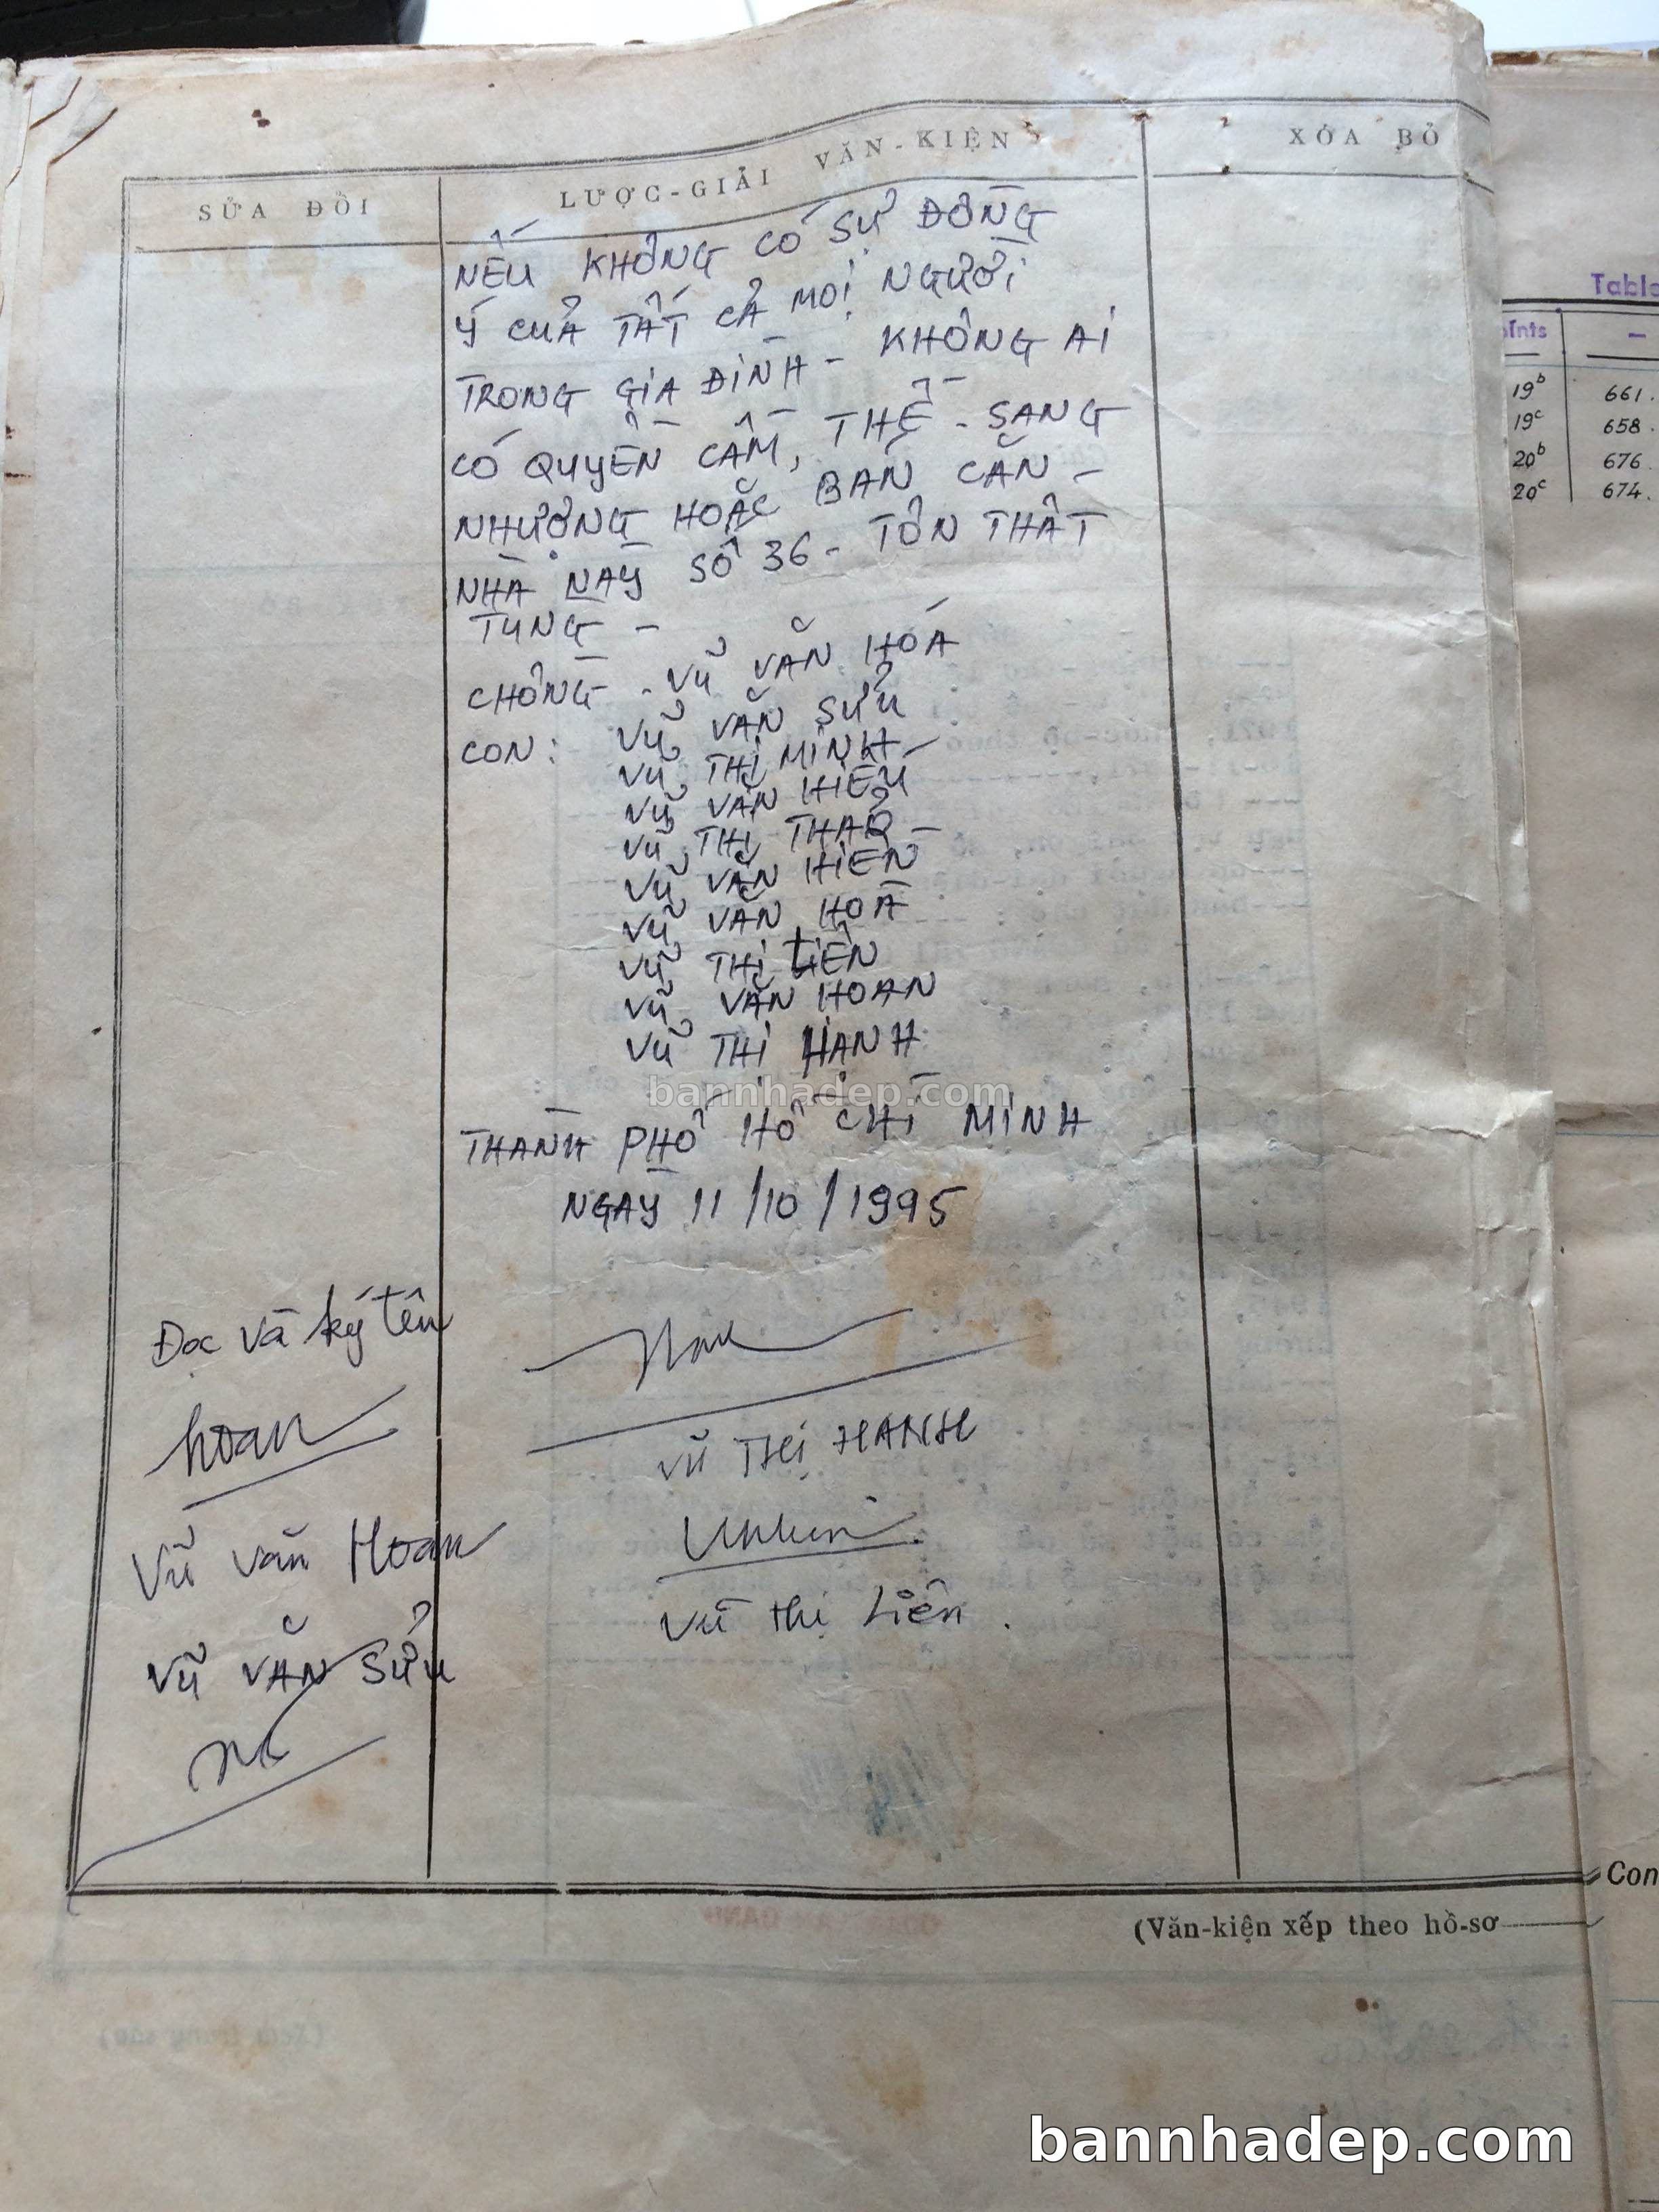 SỬA ĐỔI
LƯỢC-GIẢI VĂN-KIỆN
XÓA BỎ
NẾU KHÔNG CÓ SỰ ĐỒNG
Ý CỦA TẤT CẢ MỌI NGƯỜI
TRONG GIA ĐÌNH - KHÔNG AI
CÓ QUYỀN CẦM, THẾ - SANG
NHƯỢNG HOẶC BÁN CĂN -
NHÀ NÀY SỐ 36 - TÔN THẤT
TÙNG -
CHỒNG - VŨ VĂN HÓA
CON: VŨ VĂN SỬU
VŨ THỊ MINH
VŨ VĂN HIẾU
VŨ THỊ THẢO
VŨ VĂN HIỀN
VŨ VĂN HOÀ
VŨ THỊ LIÊN
VŨ VĂN HOAN
VŨ THỊ HẠNH
bannhadep.com
THÀNH PHỐ HỒ CHÍ MINH
NGÀY 11/10/1995
Đọc và ký tên
hoan
VŨ THỊ HẠNH
Vũ văn Hoan
Vũ thị Liên.
VŨ VĂN SỬU
(Văn-kiện xếp theo hồ-sơ
Table
oints
19b 661.
19c 658.
20b 676.
20c 674.
Con
bannhadep.com